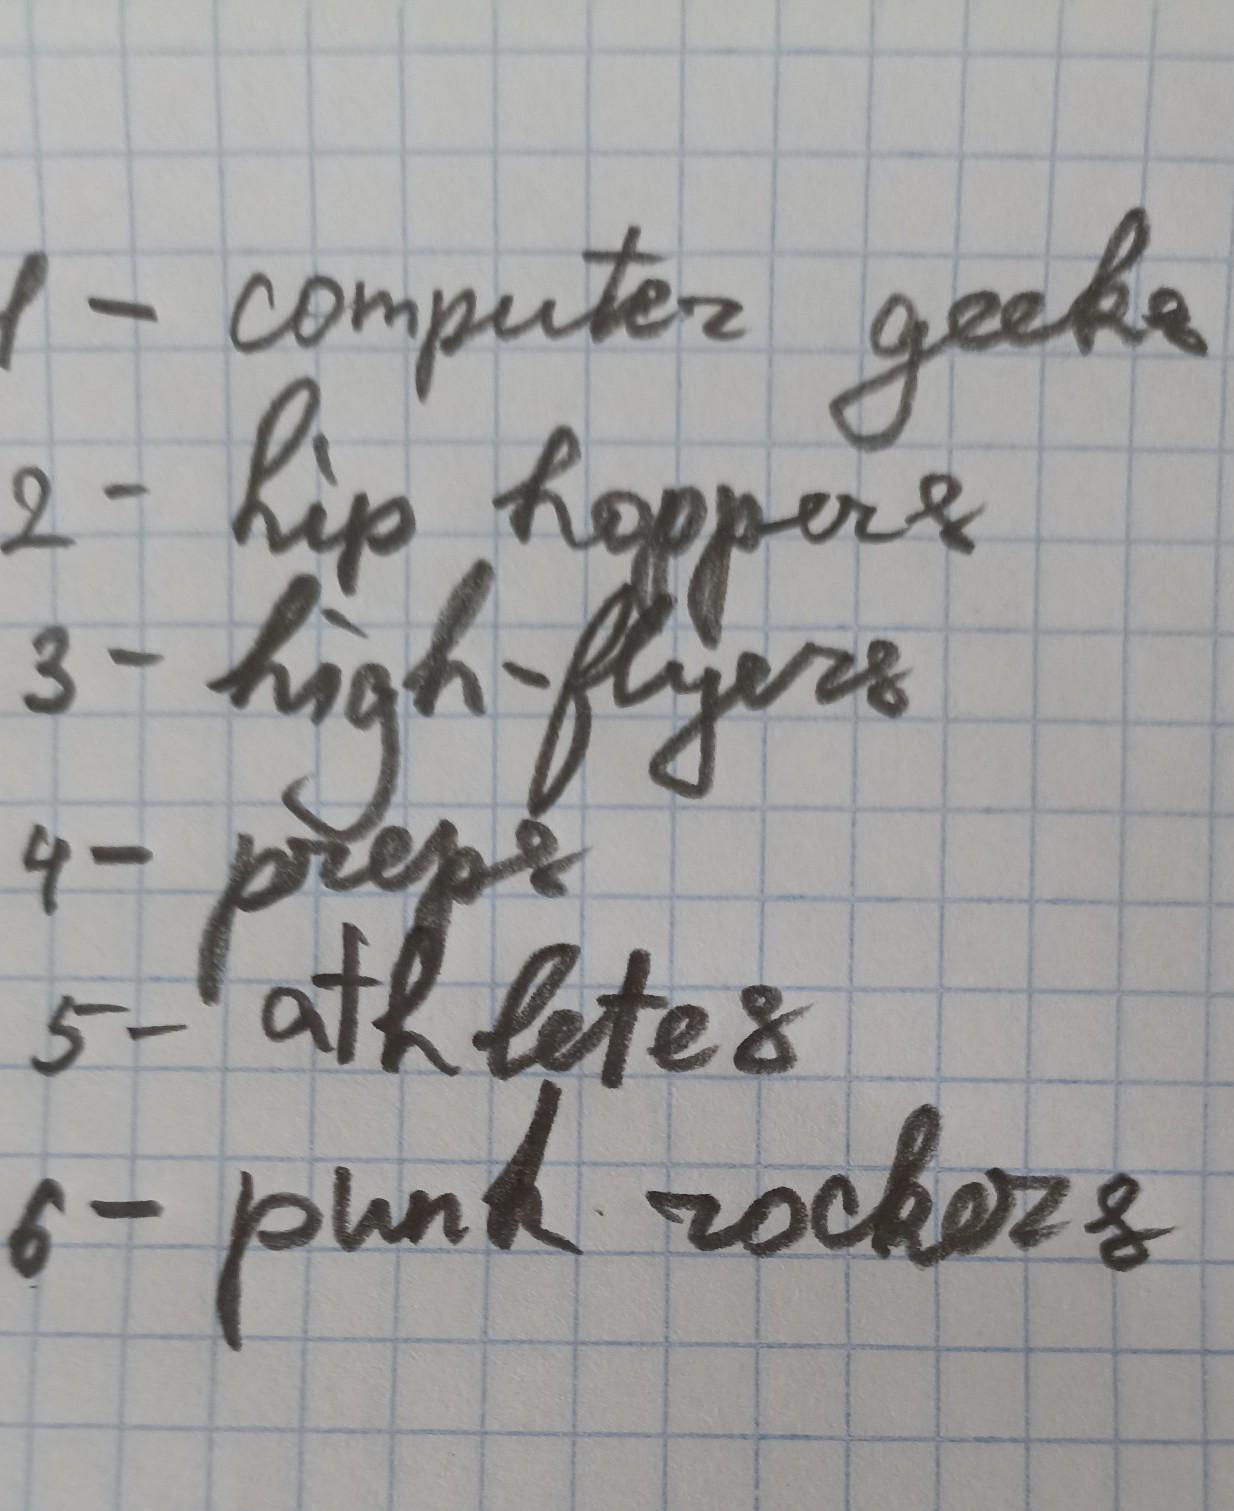 1 - computer geeks
2 - hip hoppers
3 - high-flyers
4 - preps
5 - athletes
6 - punk rockers